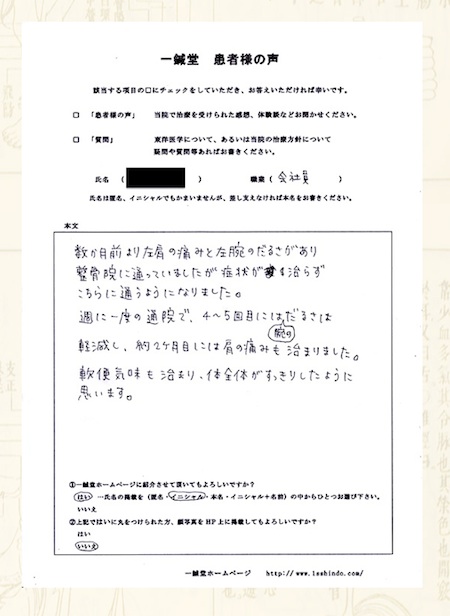 一鍼堂 患者様の声
該当する項目の□にチェックをしていただき、お答えいただければ幸いです。
□ 「患者様の声」 当院で治療を受けられた感想、体験談などお聞かせください。
□ 「質問」 東洋医学について、あるいは当院の治療方針について
疑問や質問等あればお書きください。
氏名 ( ) 職業 ( 会社員 )
氏名は匿名、イニシャルでもかまいませんが、差し支えなければ本名をお書きください。
本文
数か月前より左肩の痛みと左腕のだるさがあり
整骨院に通っていましたが症状が治らず
こちらに通うようになりました。
週に一度の通院で、4〜5回目には腕のだるさは
軽減し、約2ヶ月目には肩の痛みも治まりました。
軟便気味も治まり、体全体がすっきりしたように
思います。
①一鍼堂ホームページに紹介させて頂いてもよろしいですか?
はい →氏名の掲載を(匿名・イニシャル・本名・イニシャル+名前)の中からひとつお選び下さい。
いいえ
②上記ではいに丸をつけられた方、顔写真をHP上に掲載してもよろしいですか?
はい
いいえ
一鍼堂ホームページ http://www.isshindo.com/